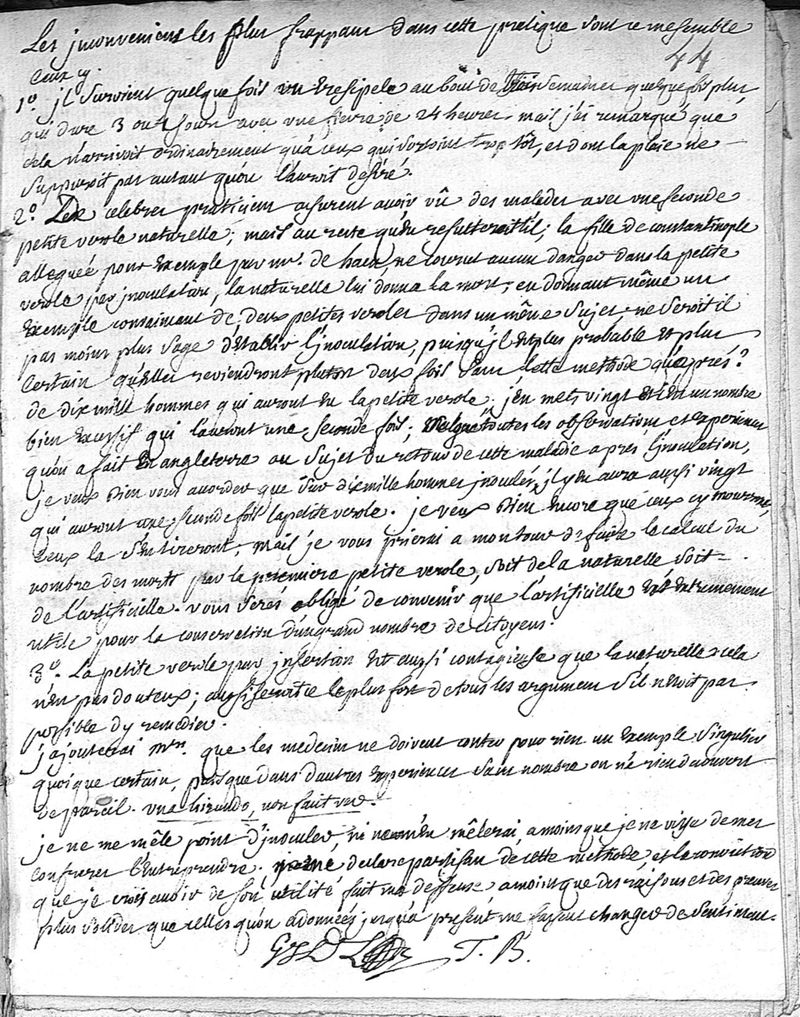 Les jnconveniens les plus frappans dans cette pratique sont ce me semble
44
ceux cy.
1.º jl survient quelque fois un Eresipele au bout de trois semaines quelque fois plus
qui dure 3 ou 4 jours avec une fievre de 24 heures mais j'ai remarqué que
cela n'arrivoit ordinairement qu'a ceux qui sortoient trop tôt, et dont la plaie ne
suppuroit pas autant qu'on l'auroit desiré.
2.º De celebres praticiens assurent avoir vû des malades avec une seconde
petite verole naturelle; mais au reste qu'en resulteroit il; la fille de constantinople
alleguée pour Exemple par mr. de haen, ne courut aucun danger dans la petite
verole par jnoculation, la naturelle lui donna la mort; en donnant même un
Exemple convaincant de deux petites veroles dans un même sujet ne seroit il
pas moins plus sage d'etablir l'jnoculation, puisqu'jl est plus probable et plus
certain qu'elles reviendront plutôt deux fois sans cette methode qu'après?
de dix mille hommes qui auront eu la petite verole. j'en mets vingt et c'est un nombre
bien Excessif qui l'auront une seconde fois; malgré toutes les observations et experiences
qu'on a fait En angleterre au sujet du retour de cette maladie apres l'jnoculation,
je veux bien vous accorder que sur dix mille hommes jnoculés, jl y en aura aussi vingt
qui auront une seconde fois la petite verole. je veux bien encore que ceux cy mourront,
ceux la s'en tireront, mais je vous prierai a mon tour de faire le calcul du
nombre des morts par la premiere petite verole, soit de la naturelle, soit
de l'artificielle. vous serés obligé de convenir que l'artificielle Est Extremement
utile pour la conservation d'un grand nombre de citoyens.
3.º La petite verole par jnsertion Est aussi contagieuse que la naturelle cela
n'est pas douteux; aussi seroit ce le plus fort de tous les argumens s'il n'etoit pas
possible d'y remedier.
j'ajouterai mrs. que les medecins ne doivent conter pour rien un Exemple singulier
quoique certain, puisque dans d'autres Experiences sans nombre on n'a rien découvert
de pareil. una hirundo, non facit ver.
je ne me mêle point d'jnoculer, ni ne m'en mêlerai, a moins que je ne visse de mes
confreres l'entreprendre. je me declare partisan de cette methode, et la conviction
que je crois avoir de son utilité fait ma deffense, a moins que des raisons et des preuves
plus solides que celles qu'on a données jusqu'a present ne fassent changer de sentiment.
T. B.